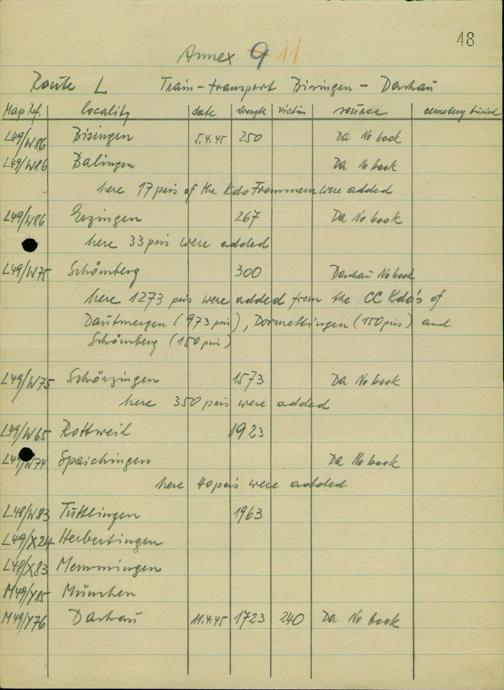 48
Annex 9 11
Route L Train-transport Bisingen - Dachau
Map Ref. locality date strength victim source cemetery buried
L49/W86 Bisingen 5.4.45 250 Da No book
L49/W86 Balingen Da No book
here 17 pris of the Kdo Frommern were added
L49/W86 Erzingen 267 Da No book
here 33 pris were added
L49/W75 Schömberg 300 Dachau No book
here 1273 pris were added from the CC Kdo's of
Dautmergen (973 pris), Dormettingen (150 pris) and
Schömberg (150 pris)
L49/W75 Schörzingen 1573 Da No book
here 350 pris were added
L49/W65 Rottweil 1923
L49/W74 Spaichingen Da No book
here 40 pris were added
L48/W83 Tuttlingen 1963
L49/X24 Herbertingen
L48/X83 Memmingen
M49/Y85 München
M49/Y76 Dachau 11.4.45 1723 240 Da No book